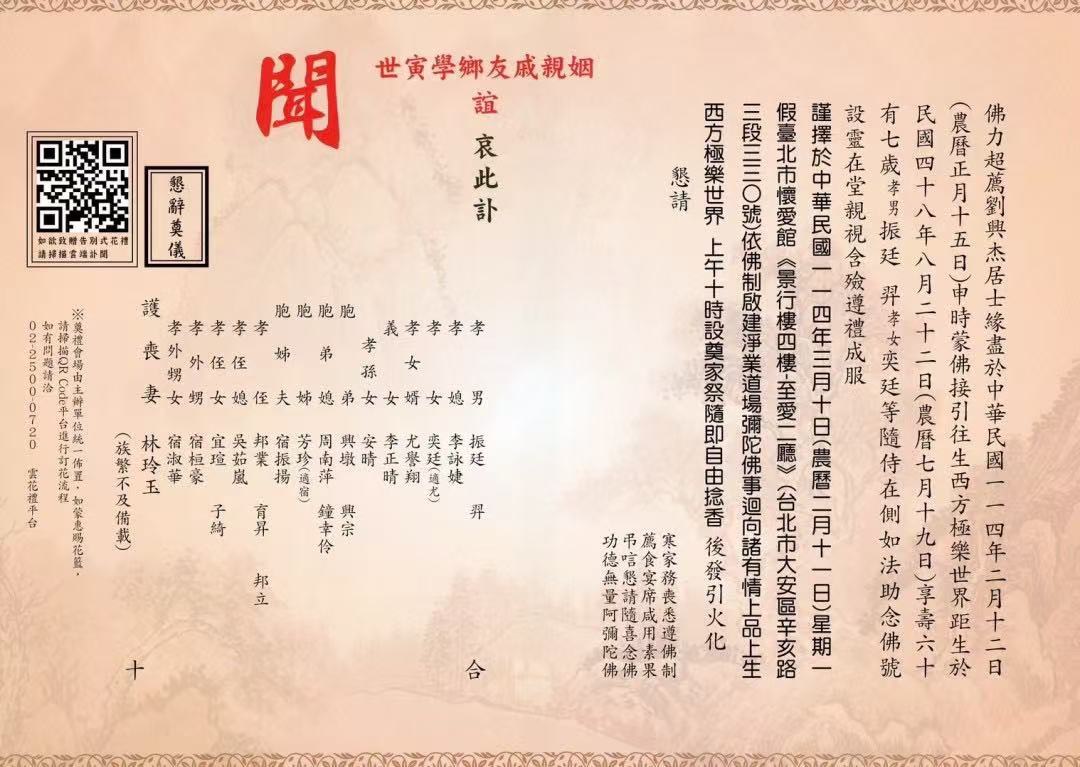 佛力超薦劉興杰居士緣盡於中華民國一一四年二月十二日
(農曆正月十五日)申時蒙佛接引往生西方極樂世界距生於
民國四十八年八月二十二日(農曆七月十九日)享壽六十
有七歲孝男振廷 羿孝女奕廷等隨侍在側如法助念佛號
設靈在堂親視含殮遵禮成服
謹擇於中華民國一一四年三月十日(農曆二月十一日)星期一
假臺北市懷愛館《景行樓四樓-至愛二廳》(台北市大安區辛亥路
三段三三〇號)依佛制啟建淨業道場彌陀佛事迴向諸有情上品上生
西方極樂世界 上午十時設奠家祭隨即自由捻香 後發引火化
懇請
寒家務喪悉遵佛制
薦食宴席咸用素果
弔唁懇請隨喜念佛
功德無量阿彌陀佛
姻親戚友鄉學寅世
誼 哀此訃
聞
孝男 振廷 羿
孝媳 李詠婕
孝女 奕廷(適尤)
孝女婿 尤譽翔
義女 李正晴
孝孫女 安晴
胞弟 興墩 興宗
胞弟媳 周南萍 鐘幸伶
胞姊 芳珍(適宿)
胞姊夫 宿振揚
孝侄 邦業 育昇 邦立
孝侄媳 吳茹嵐
孝侄女 宜瑄 子綺
孝外甥 宿桓豪
孝外甥女 宿淑華
護喪妻 林玲玉
(族繁不及備載)
合
十
懇辭奠儀
如欲致贈告別式花禮
請掃描雲端訃聞
※奠禮會場由主辦單位統一佈置,如蒙惠賜花籃,
請掃描QR Code平台進行訂花流程
如有問題請洽
02-2500-0720 雲花禮平台